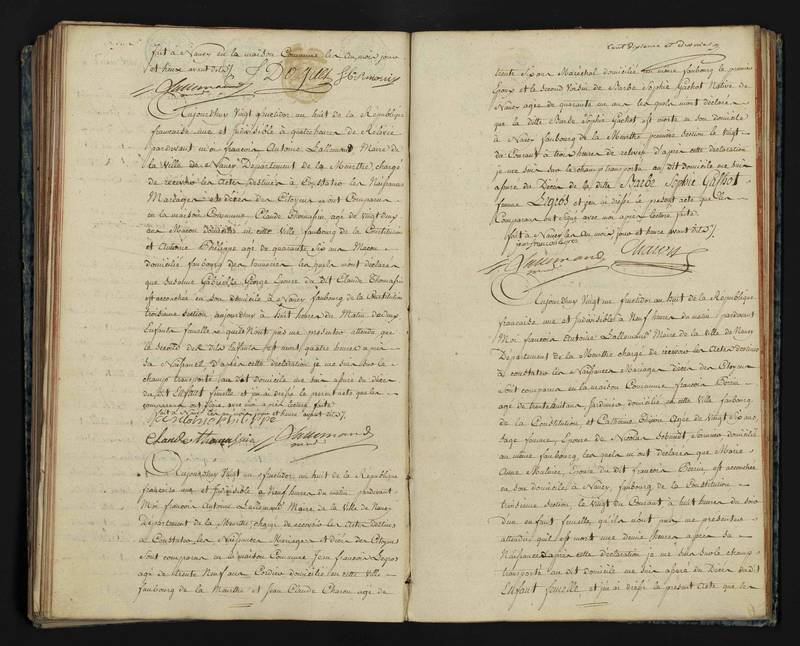 fait à Nancy en la maison Commune les an, mois, jour
et heure avant dits
Lallemand
Aujourdhuy Vingt fructidor an huit de la République
francaise une et Indivisible à quatre heures de Relevée
pardevant moi francois Antoine Lallemand Maire de
la Ville de Nancy Département de la Meurthe chargé
de recevoir les Actes destinés à Constater les Naissances
Mariages et décès des Citoyens sont Comparus
en la maison Commune Claude Thomassin agé de Vingt deux
ans Macon domicilié en cette Ville faubourg de la Constitution
et Antoine Philippe agé de quarante Six ans Macon
domicilié faubourg des lesquels mont déclarés
que Susanne Gabrielle George Epouse du dit Claude Thomassin
est accouchée en son domicile à Nancy faubourg de la Constitution
troisieme section, aujourdhuy à huit heures du Matin de deux
Enfants femelles quils Nont pas me presenter attendu que
le second des dits Enfants est mort quatre heures après
sa Naissance, d'après cette déclaration je me suis sur le
champ transporté au dit domicile me suis assuré du décès
du dit Enfant femelle et j'ai dressé le present acte que les
comparans ont signé avec moi après lecture faite
fait à Nancy les an, mois, jour et heure avant dits
antoine philippe
Claude thomassin Lallemand
Aujourdhuy Vingt un fructidor an huit de la République
francaise une et Indivisible à Neuf heures du matin pardevant
Moi francois Antoine Lallemand Maire de la Ville de Nancy
Département de la Meurthe chargé de recevoir les Actes destinés
à Constater les Naissances Mariages et décès des Citoyens
Sont comparus en la maison Commune Jean francois Legros
agé de trente Neuf ans Cordier domicilié en cette Ville
faubourg de la Meurthe et Jean Claude Charon agé de
cent dixieme et
trente Six ans Maréchal domicilié en même faubourg le premier
Epoux et le Second Voisin de Barbe Sophie Gachot Native de
Nancy agée de quarante un ans les quels mont déclarés
que la ditte Barbe Sophie Gachot est morte en son domicile
à Nancy faubourg de la Meurthe premiere Section le Vingt
du Courant à trois heures de relevée d'après cette déclaration
je me suis sur le champ transporté au dit domicile me suis
assuré du Décès de la ditte Barbe Sophie Gachot
femme Legros et j'en ai dressé le present acte que les
Comparans ont Signé avec moi après Lecture faite
fait à Nancy les an, mois, jour et heure avant dits
jean francois legros
Lallemand Charon
Aujourdhuy Vingt un fructidor an huit de la République
francaise une et indivisible à Neuf heures du matin pardevant
Moi francois Antoine Lallemand Maire de la Ville de Nancy
Département de la Meurthe chargé de recevoir les Actes destinés
à constater les Naissances Mariages et décès des Citoyens
Sont comparus en la maison Commune francois Perrin
agé de trente huit ans, Jardinier domicilié en cette Ville faubourg
de la Constitution, et Catherine Agée de Vingt Six ans
Sage femme, Epouse de Nicolas domicilié
au même faubourg, les quels m'ont déclarés que Marie
Anne Epouse du dit francois Perrin est accouchée
en son domicile à Nancy, faubourg de la Constitution
troisieme section, le vingt du Courant à huit heures du soir
d'un enfant femelle, quils nont pas me presenter
attendu qu'il est mort une demie heure après sa
Naissance d'après cette déclaration je me suis sur le champ
transporté au dit domicile me suis assuré du Décès du dit
Enfant femelle, et j'en ai dressé le present acte que les